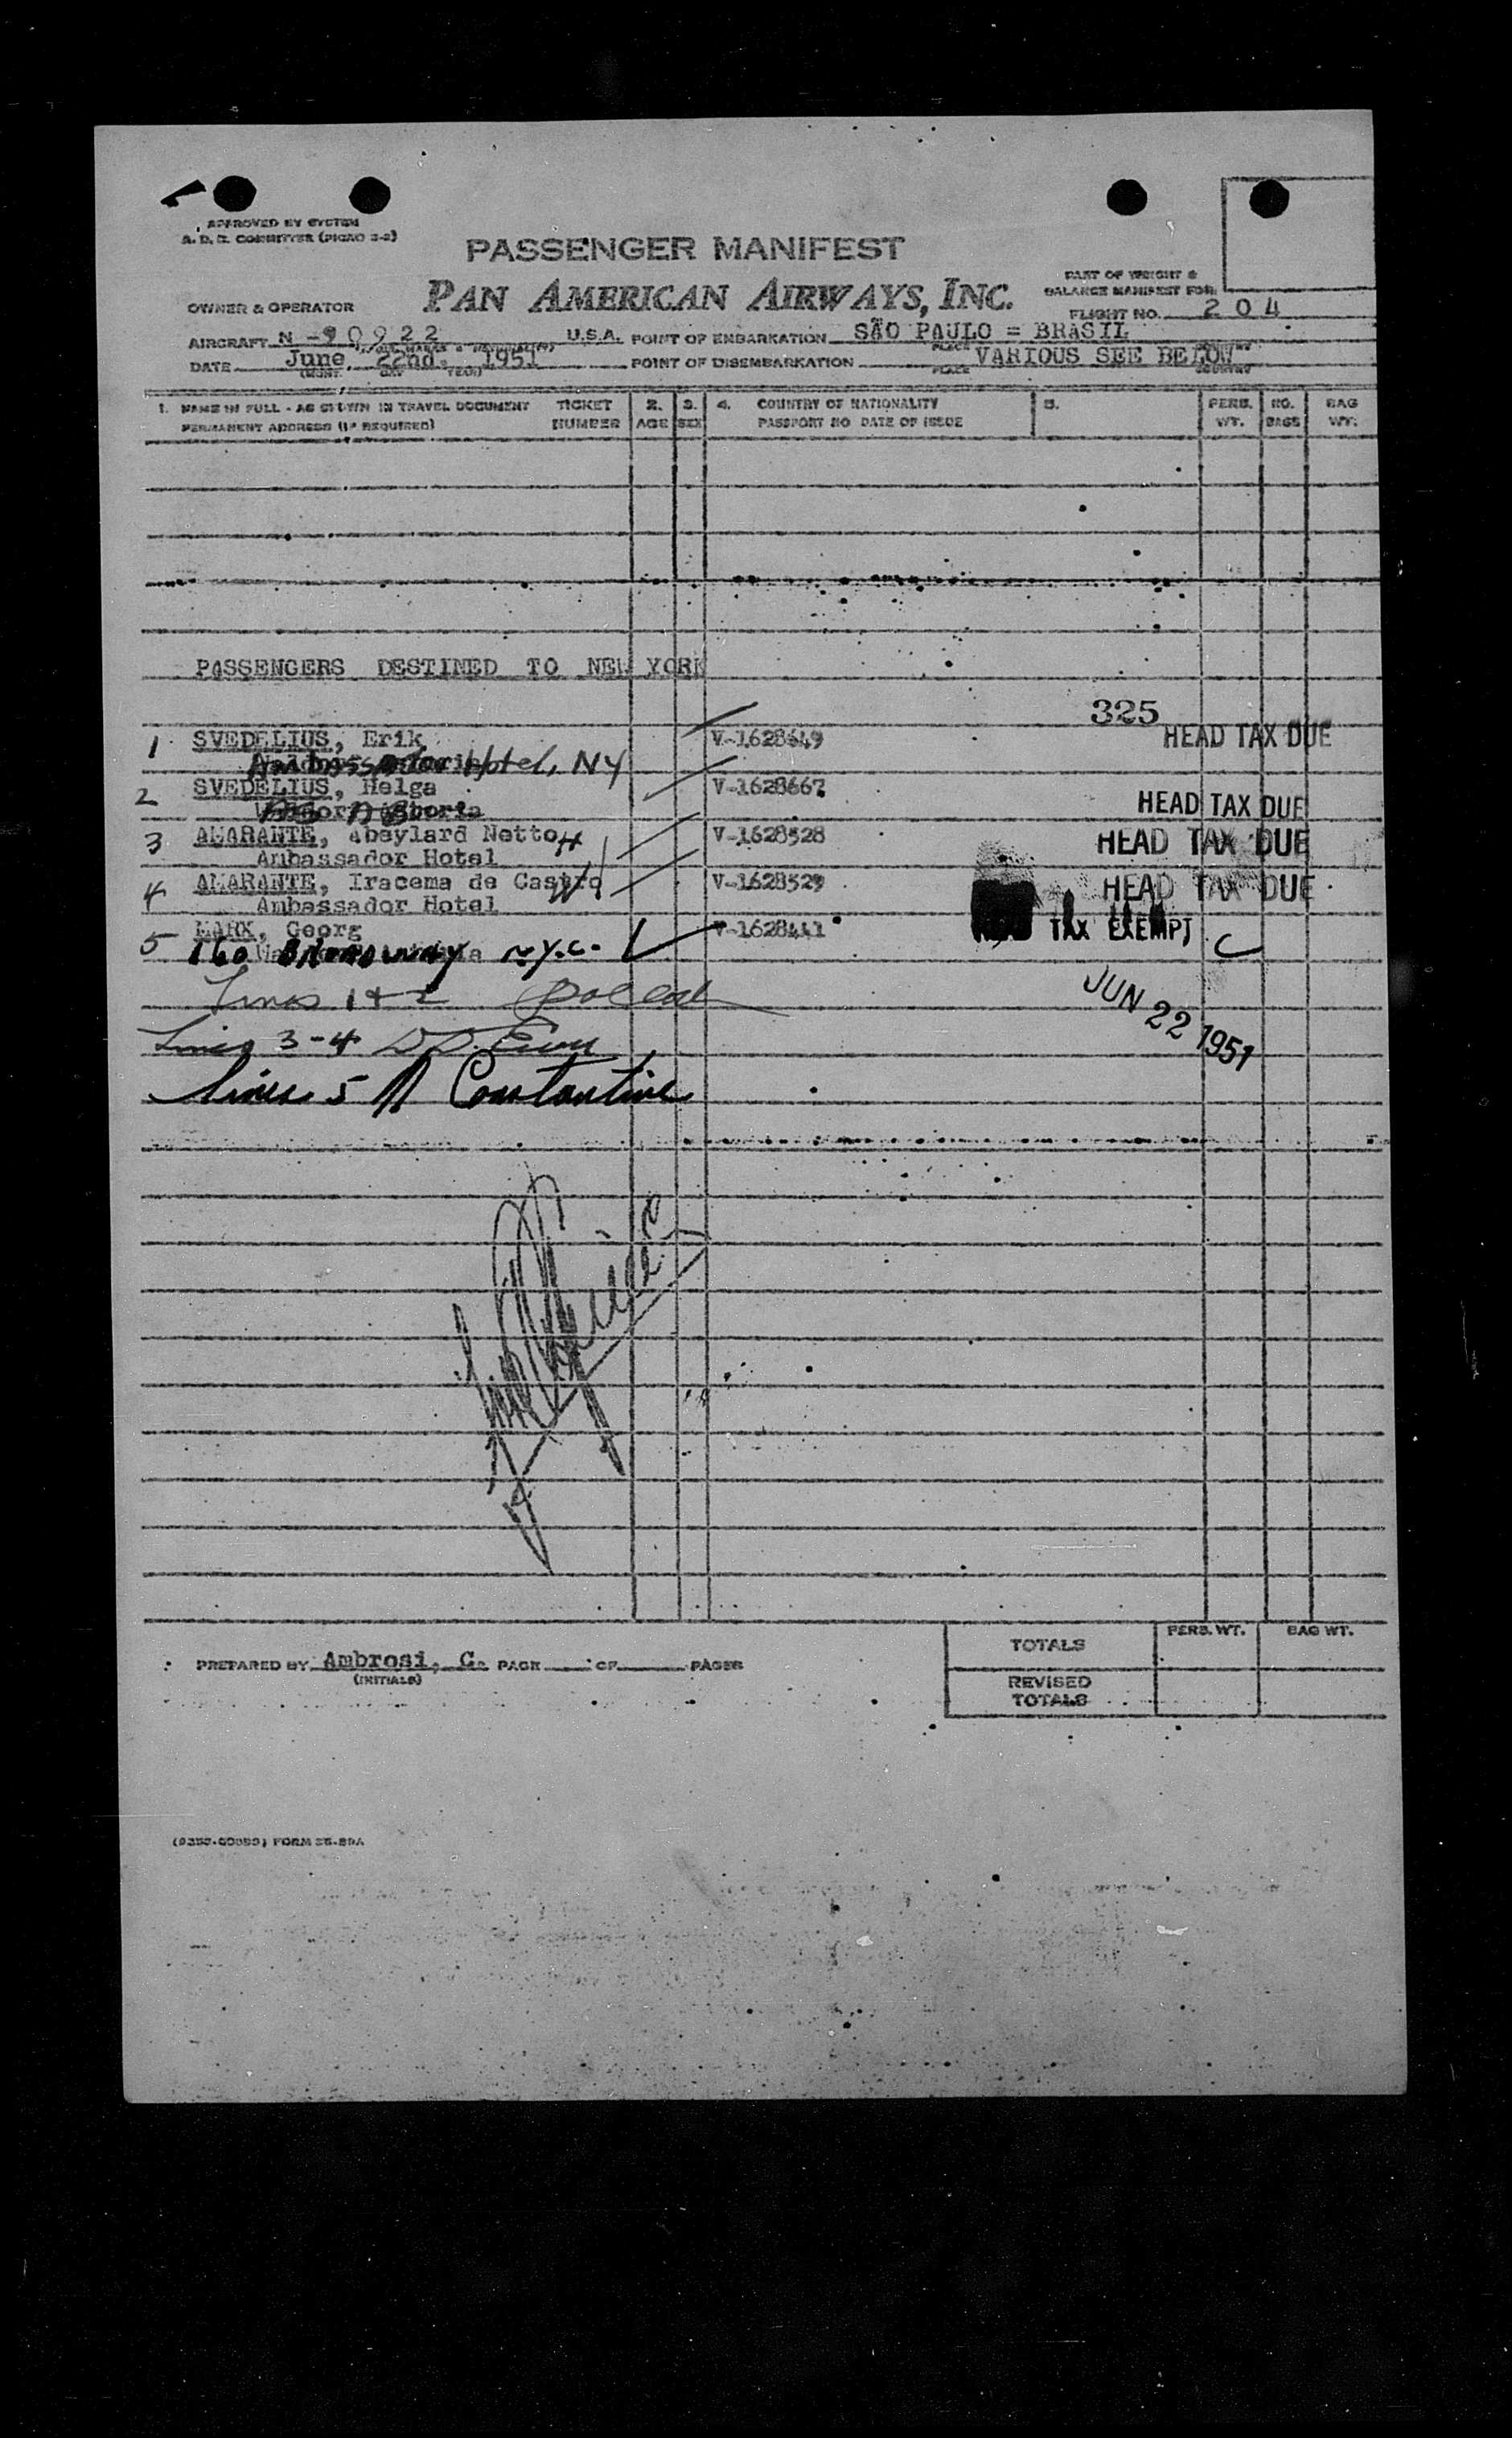 APPROVED BY SYSTEM
PASSENGER MANIFEST
PAN AMERICAN AIRWAYS, INC.
PART OF WEIGHT &
BALANCE MANIFEST FOR
OWNER & OPERATOR
FLIGHT NO. 204
AIRCRAFT N-90922 U.S.A. POINT OF EMBARKATION SÃO PAULO = BRASIL
DATE June 22nd. 1951 POINT OF DISEMBARKATION VARIOUS SEE BELOW
1. NAME IN FULL - AS SHOWN IN TRAVEL DOCUMENT TICKET 2. 3. 4. COUNTRY OF NATIONALITY 5. PERS. NO. BAG
PERMANENT ADDRESS (IF REQUIRED) NUMBER AGE SEX PASSPORT NO DATE OF ISSUE WT. BAGS WT.
PASSENGERS DESTINED TO NEW YORK
325
1 SVEDELIUS, Erik V-1628649 HEAD TAX DUE
Hotel, NY
2 SVEDELIUS, Helga V-1628667 HEAD TAX DUE
3 AMARANTE, Abeylard Netto V-1628528 HEAD TAX DUE
Ambassador Hotel
4 AMARANTE, Iracema de Castro V-1628529 HEAD TAX DUE
Ambassador Hotel
5 MARX, Georg V-1628441 TAX EXEMPT C
160 Broadway N.Y.C.
Lines 1 & 2
JUN 22 1951
Lines 3-4
Lines 5 Constantine
TOTALS PERS. WT. BAG WT.
PREPARED BY Ambrosi, C. PAGE OF PAGES
(INITIALS)
REVISED
TOTALS